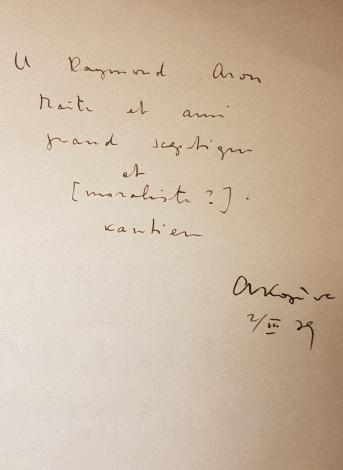 à Raymond Aron
Maître et ami
grand sceptique
et
[moraliste ?].
kantien
AKojève
2/III 39